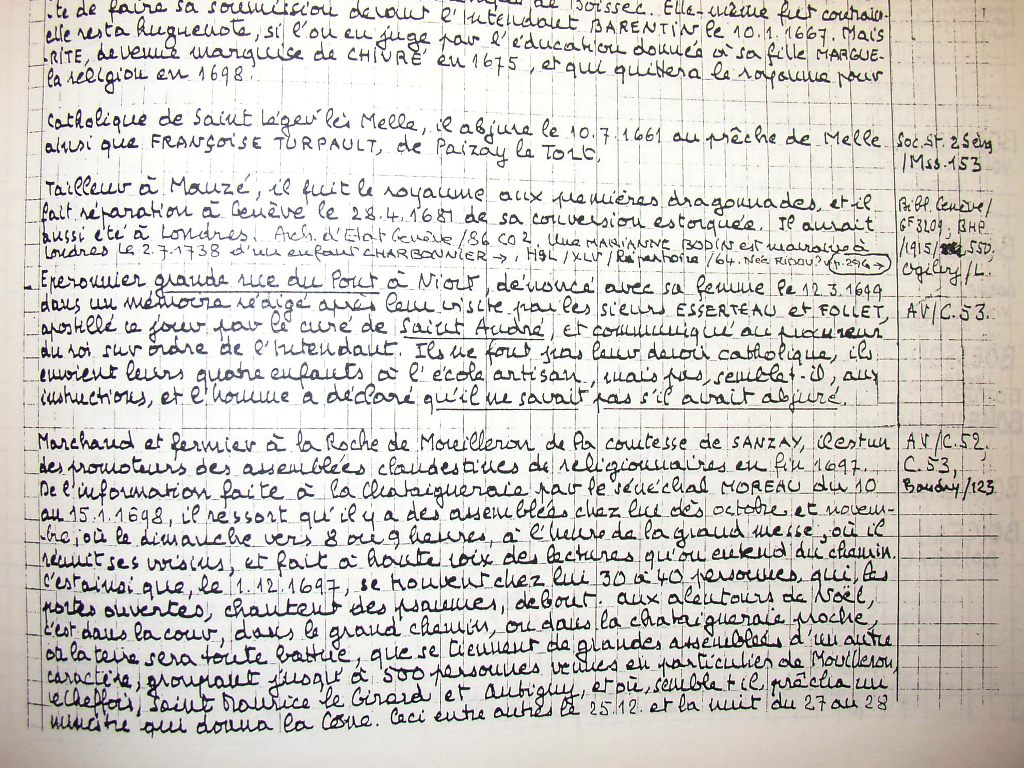 te de faire sa soumission devant l'Intendant BARENTIN le 10.1.1667. Mais
elle resta huguenote, si l'on en juge par l'éducation donnée à sa fille MARGUE-
RITE, devenue marquise de CHIVRÉ en 1675, et qui quittera le royaume pour
la religion en 1698.
Catholique de Saint Léger lès Melle, il abjure le 10.7.1661 au prêche de Melle
ainsi que FRANÇOISE TURPAULT, de Paizay le Tort.
Soc. St. 2 Sèvres
/Mss. 153
Tailleur à Mauzé, il fuit le royaume aux premières dragonnades, et il
fait réparation à Genève le 28.4.1681 de sa conversion extorquée. Il aurait
aussi été à Londres. Arch. d'Etat Genève/86 CO2. Une MARIANNE BODIN est marraine à
Londres le 2.7.1738 d'un enfant CHARBONNIER →, HSL/XLV/Répertoire/64. Née RIDOU? (p.296→)
Bibl. Genève/
GF 3209, BHP
/1915/ 550,
Ogilvy/L.
Eperonnier grande rue du Pont à Niort, dénoncé avec sa femme le 12.3.1699
dans un mémoire rédigé après leur visite par les sieurs ESSERTEAU et FOLLET,
apostillé ce jour par le curé de Saint André, et communiqué au procureur
du roi sur ordre de l'Intendant. Ils ne font pas leur devoir catholique, ils
envoient leurs quatre enfants à l'école artisan, mais pas, semble-t-il, aux
instructions, et l'homme a déclaré qu'il ne savait pas s'il avait abjuré.
AV/C.53.
Marchand et fermier à la Roche de Mouilleron de la comtesse de SANZAY, il est un
des promoteurs des assemblées clandestines de religionnaires en fin 1697.
De l'information faite à la Chataigneraie par le sénéchal MOREAU du 10
au 15.1.1698, il ressort qu'il y a des assemblées chez lui dès octobre et novem-
bre, où le dimanche vers 8 ou 9 heures, à l'heure de la grand messe, où il
réunit ses voisins, et fait à haute voix des lectures qu'on entend du chemin.
C'est ainsi que, le 1.12.1697, se trouvent chez lui 30 à 40 personnes, qui, les
portes ouvertes, chantent des psaumes, debout. Aux alentours de Noël,
c'est dans la cour, dans le grand chemin, ou dans la chataigneraie proche,
où la terre sera toute battue, que se tiennent de grandes assemblées d'un autre
caractère, groupant jusqu'à 500 personnes venues en particulier de Mouilleron,
Cheffois, Saint Maurice le Girard et Antigny, et où, semble-t-il, prêcha un
ministre qui donna la Cène. Ceci entre autres le 25.12. et la nuit du 27 au 28
AV/C.52,
C.53,
Baudry/123